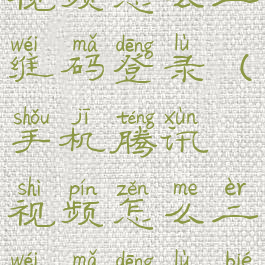 视频怎么二
wéi mǎ dēng lù
维码登录（
shǒu jī téng xùn
手机腾讯
shì pín zěn me èr
视频怎么二
wéi mǎ dēng lù bié